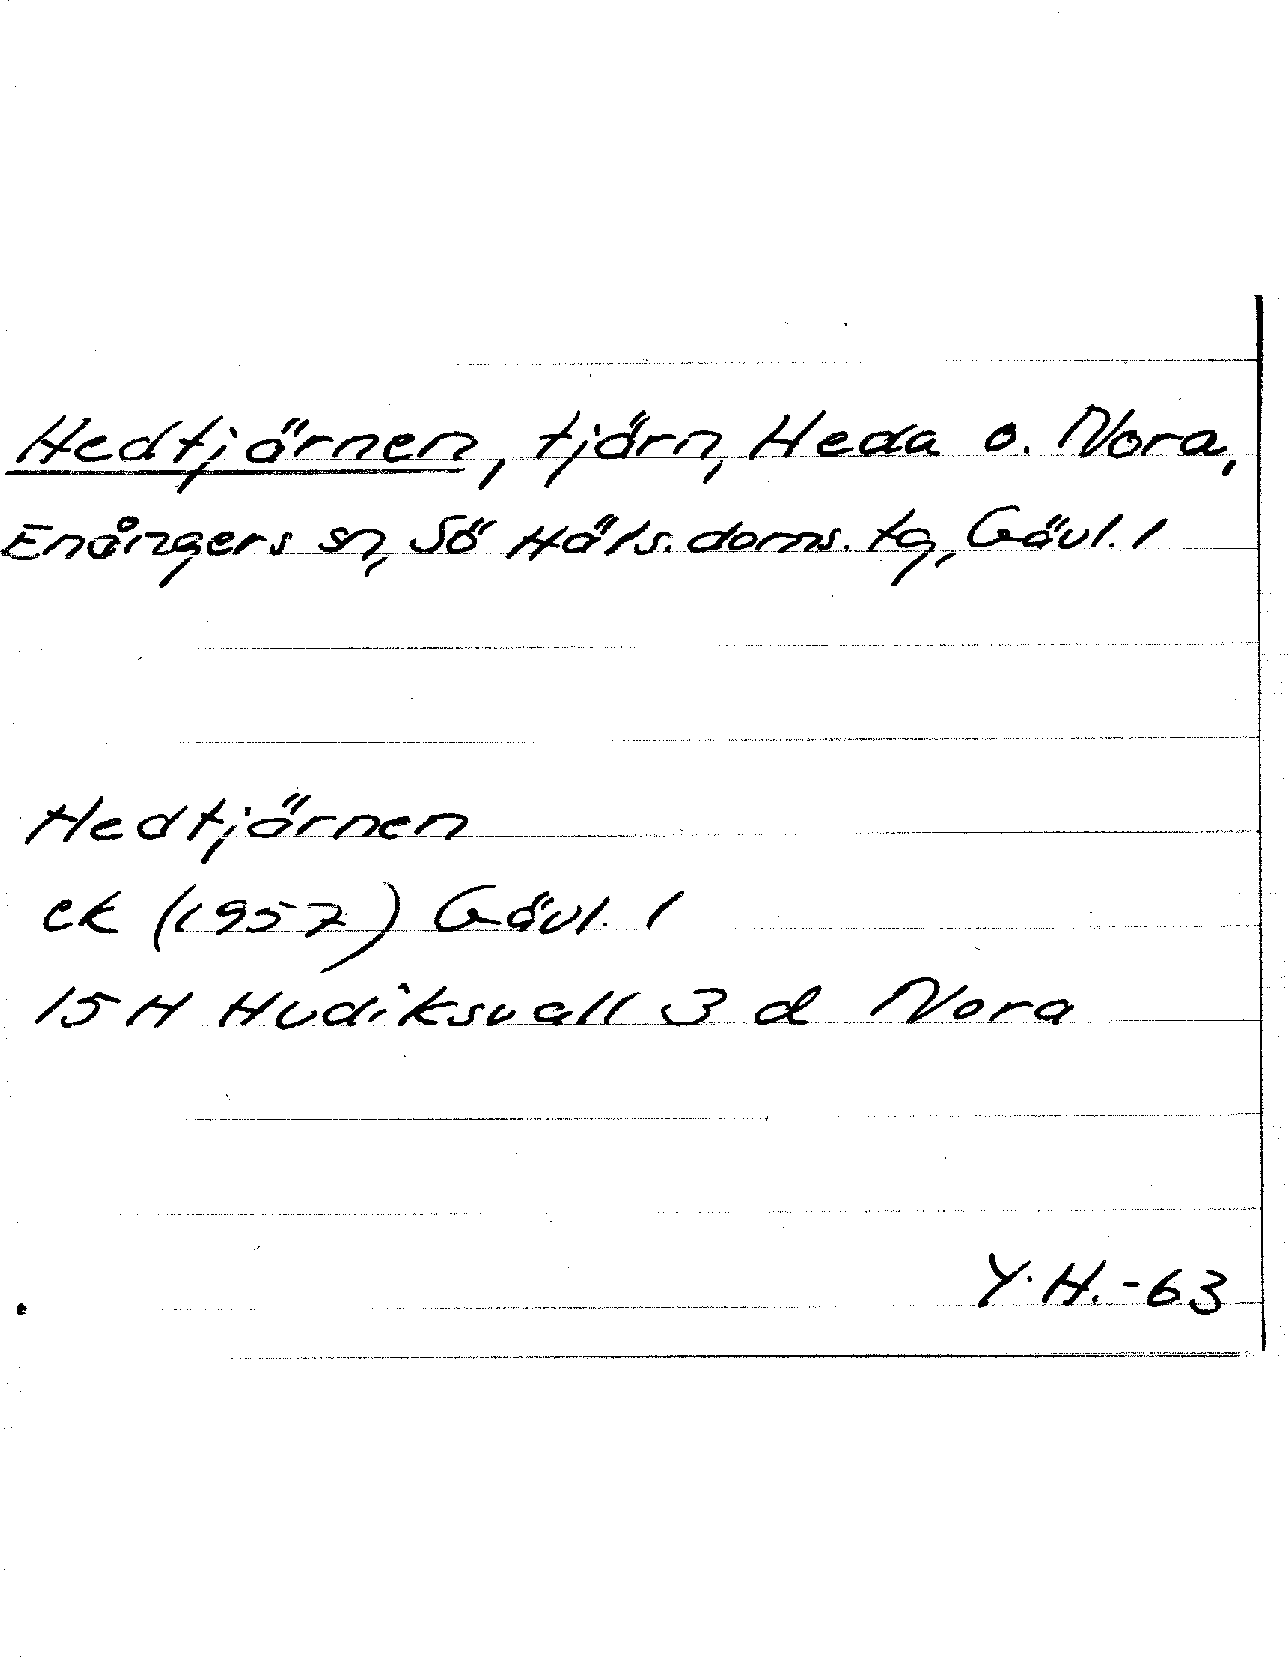 Hedtjärnen, tjärn, Heda o. Nora,
Enångers sn, Sö Häls. doms. tg, Gävl. l
Hedtjärnen
ek (1957) Gävl. l
15 H Hudiksvall 3 d Nora
Y. H. -63